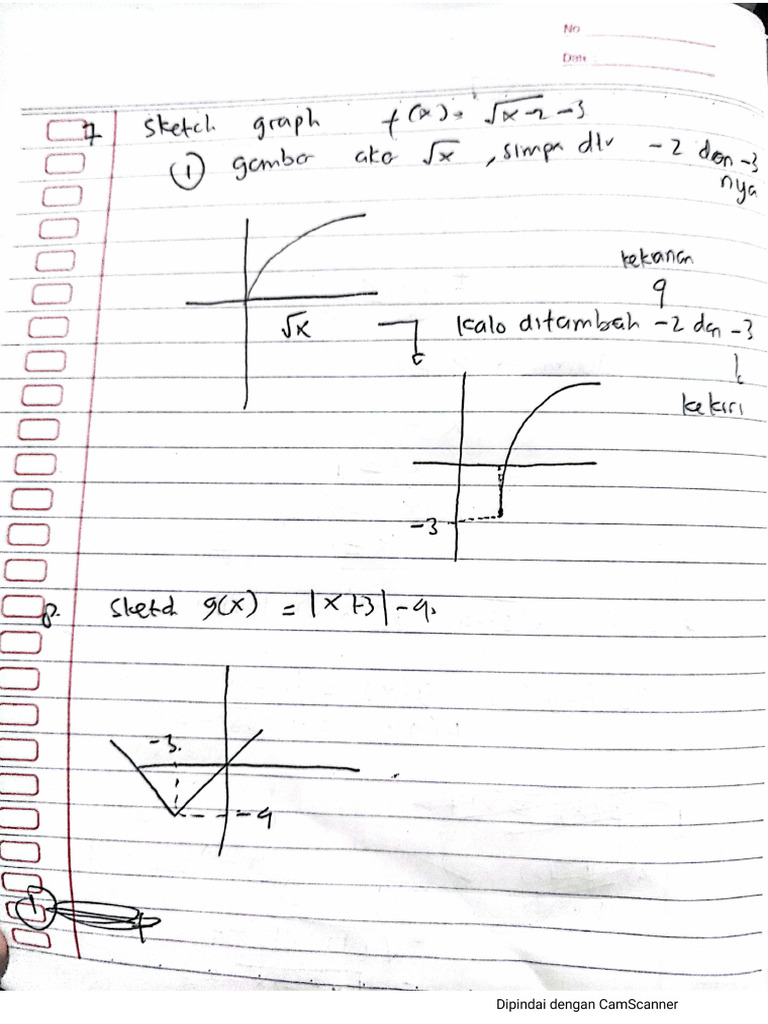 No
Date
7 Sketch graph f(x) = √x-2 -3
① gambar aka √x , simpa dlu -2 dan -3
nya
kekanan
√x kalo ditambah -2 dan -3
kekiri
-3
8. Sketch g(x) = |x+3| -4.
-3.
-4
Dipindai dengan CamScanner